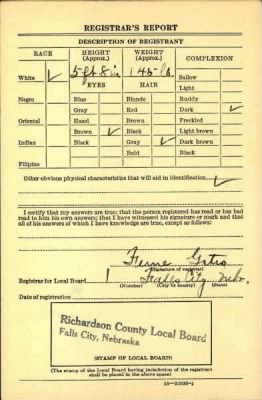 REGISTRAR'S REPORT
DESCRIPTION OF REGISTRANT
RACE HEIGHT (Approx.) WEIGHT (Approx.) COMPLEXION
White ✓ 5 ft 8 in 145 lb. Sallow
EYES HAIR Light
Negro Blue Blonde Ruddy
Gray Red Dark ✓
Oriental Hazel Brown Freckled
Brown ✓ Black Light brown
Indian Black Gray ✓ Dark brown
Bald Black
Filipino
Other obvious physical characteristics that will aid in identification ✓
I certify that my answers are true; that the person registered has read or has had
read to him his own answers; that I have witnessed his signature or mark and that
all of his answers of which I have knowledge are true, except as follows:
Ferne
(Signature of registrar)
Registrar for Local Board 1 Falls City Nebr.
(Number) (City or county) (State)
Date of registration
Richardson County Local Board
Falls City, Nebraska
(STAMP OF LOCAL BOARD)
(The stamp of the Local Board having jurisdiction of the registrant
shall be placed in the above space)